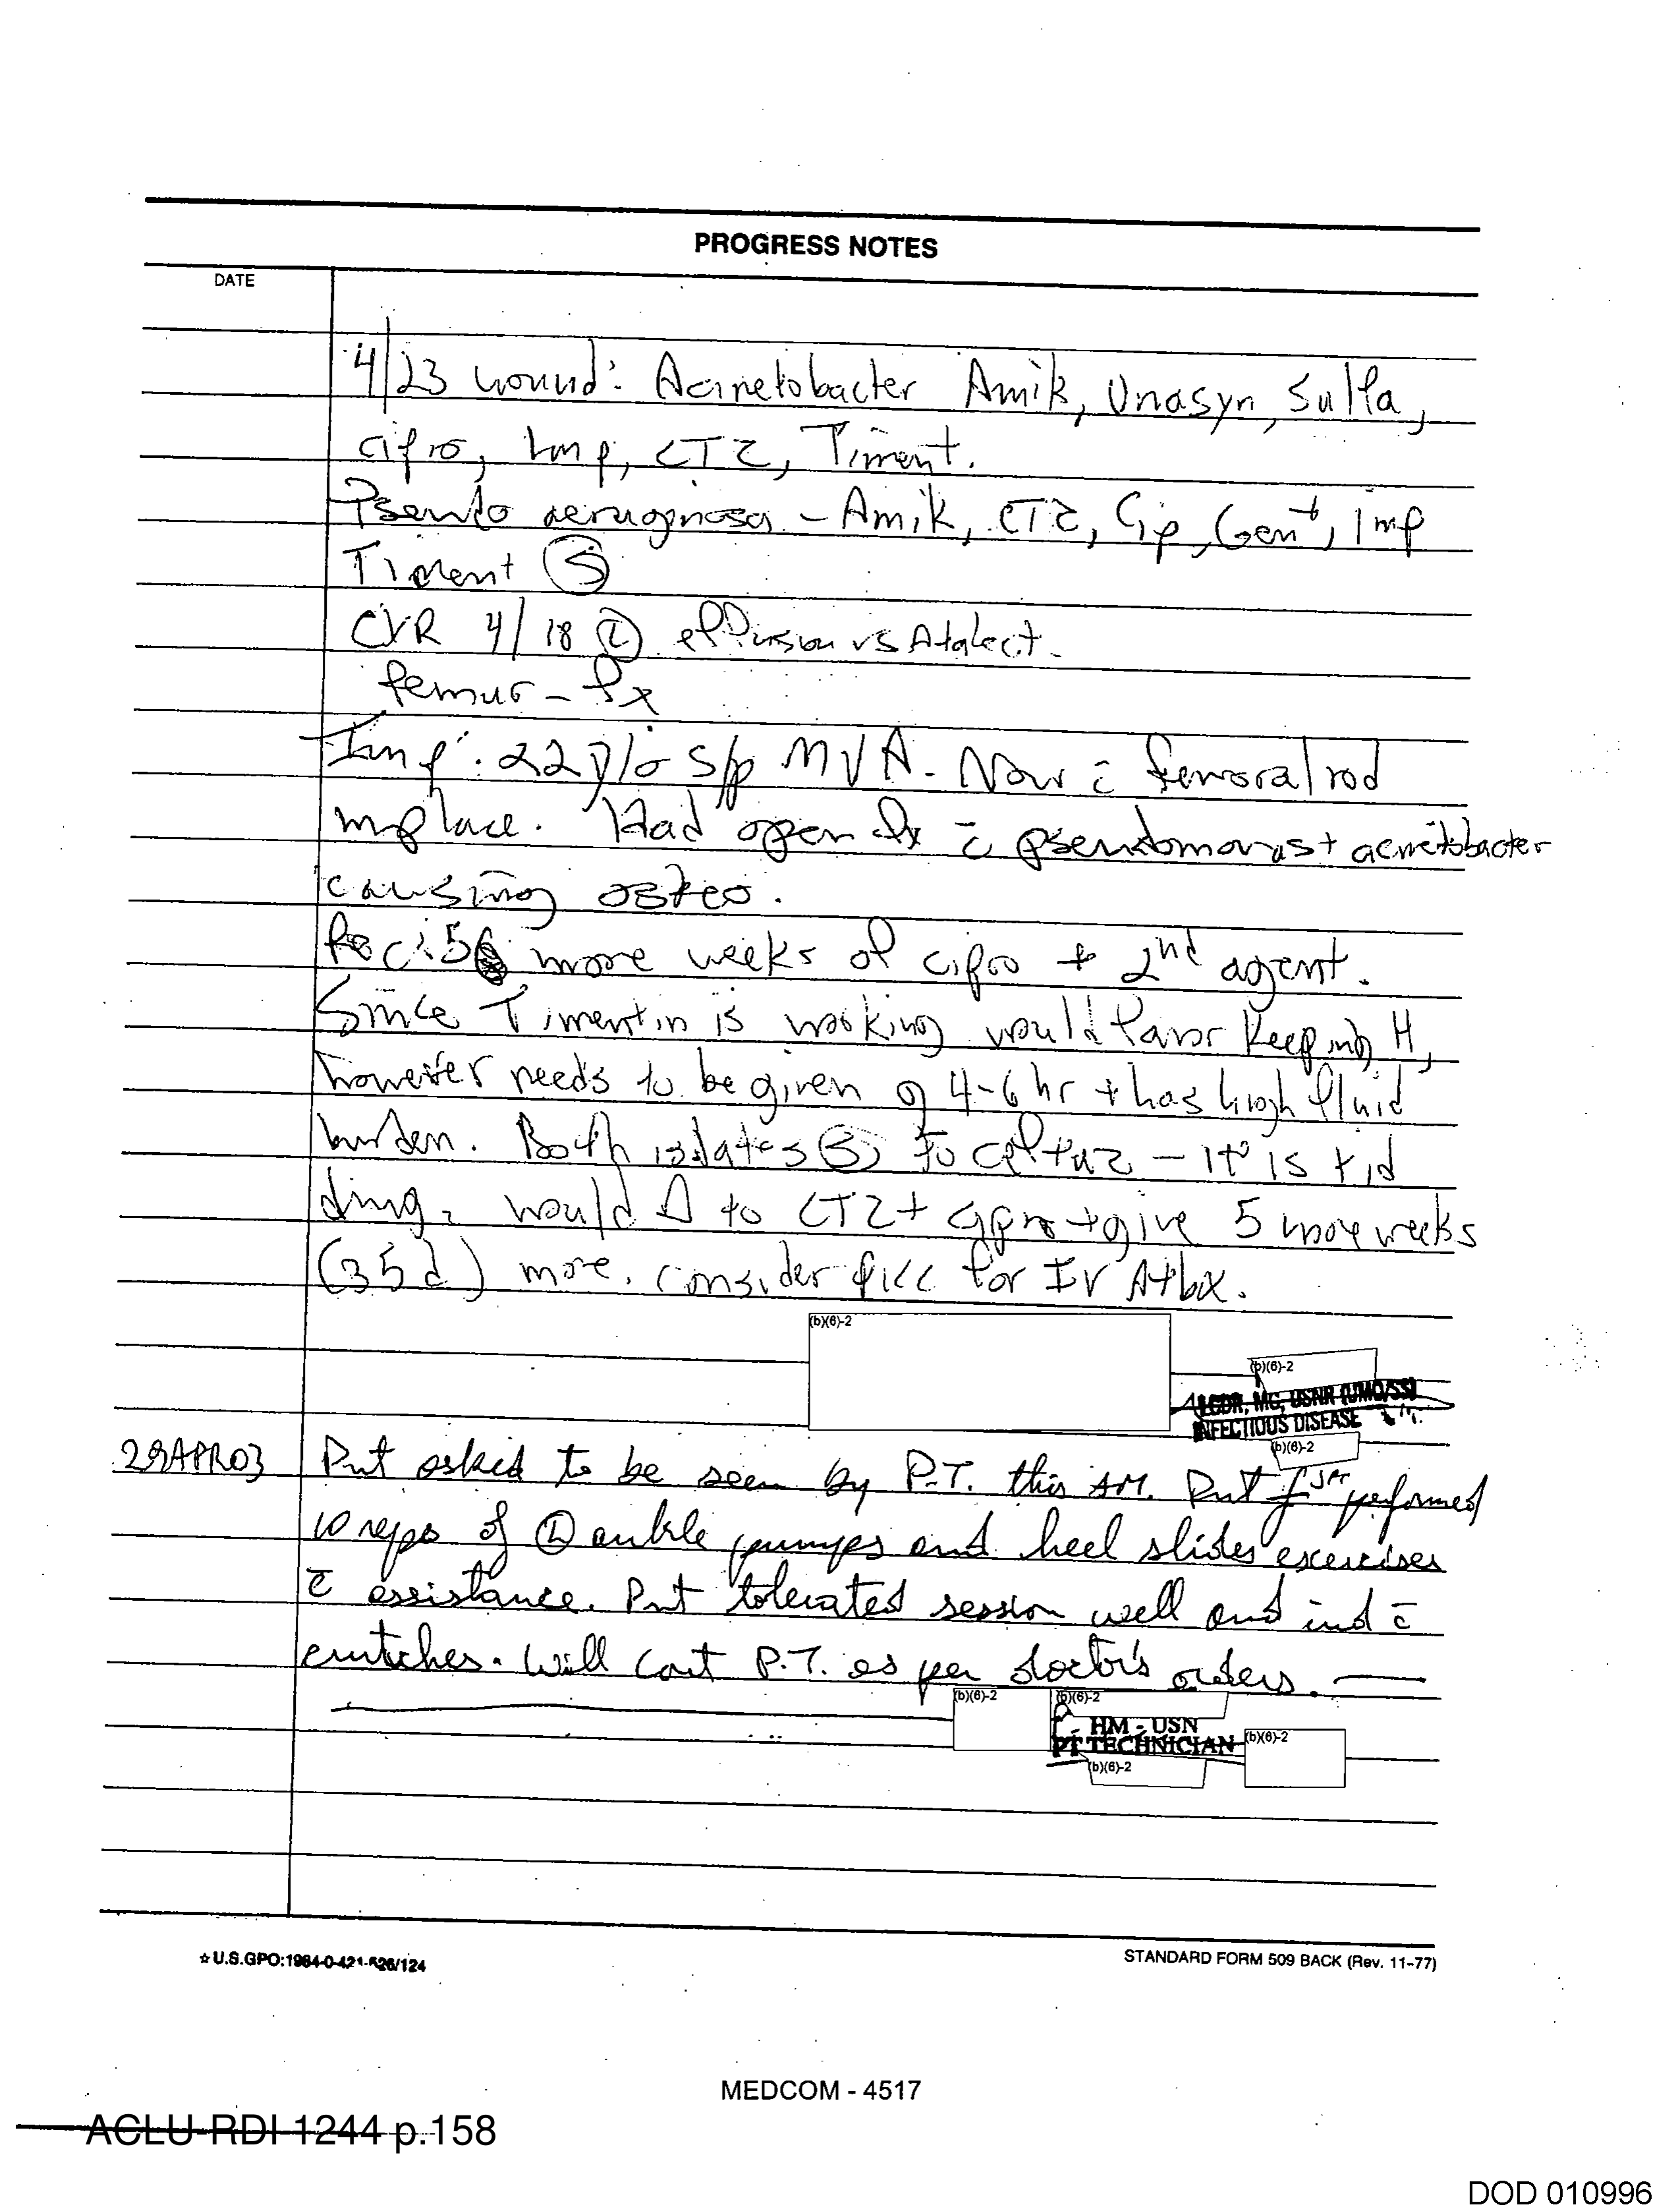 PROGRESS NOTES
DATE
4/23 wound: Acinetobacter Amik, Unasyn, Sulfa,
cipro, Imp, CTZ, Timent.
Pseudo aeruginosa - Amik, CTZ, Cip, Gent, Imp
Timent Ⓢ
CXR 4/18 Ⓛ effusion vs Atalect.
femur - fx
Imp: 22 y/o s/p MVA. Now c̄ femoral rod
in place. Had open fx c̄ pseudomonas + acinetobacter
causing osteo.
Rec: 5 more weeks of cipro + 2nd agent.
Since Timentin is working would favor keeping it,
however needs to be given q 4-6 hr + has high fluid
burden. Both isolates Ⓢ to ceftaz - it is tid
drug, would Δ to CTZ + cipro + give 5 more weeks
(35d) more. consider picc for IV Atbx.
(b)(6)-2
(b)(6)-2
LCDR, MC, USNR (UMO/SS)
INFECTIOUS DISEASE
(b)(6)-2
29APR03 Pnt asked to be seen by P.T. this AM. Pnt performed
10 reps of Ⓛ ankle pumps and heel slides exercises
c̄ assistance. Pnt tolerated session well and ind c̄
crutches. Will cont P.T. as per doctor's orders.
(b)(6)-2 (b)(6)-2
HM - USN
PT TECHNICIAN (b)(6)-2
(b)(6)-2
☆U.S.GPO:1984-0-421-526/124 STANDARD FORM 509 BACK (Rev. 11-77)
MEDCOM - 4517
ACLU-RDI 1244 p.158
DOD 010996